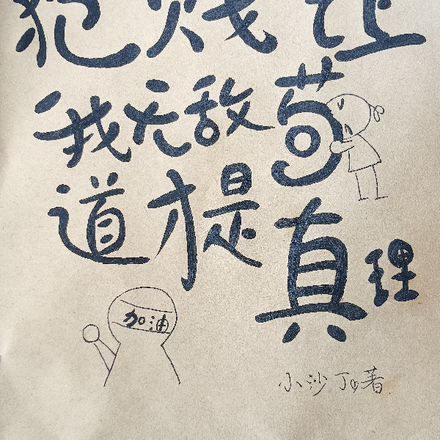 犯贱让
我无敌苟
道才是
真理
加油
小沙丁著